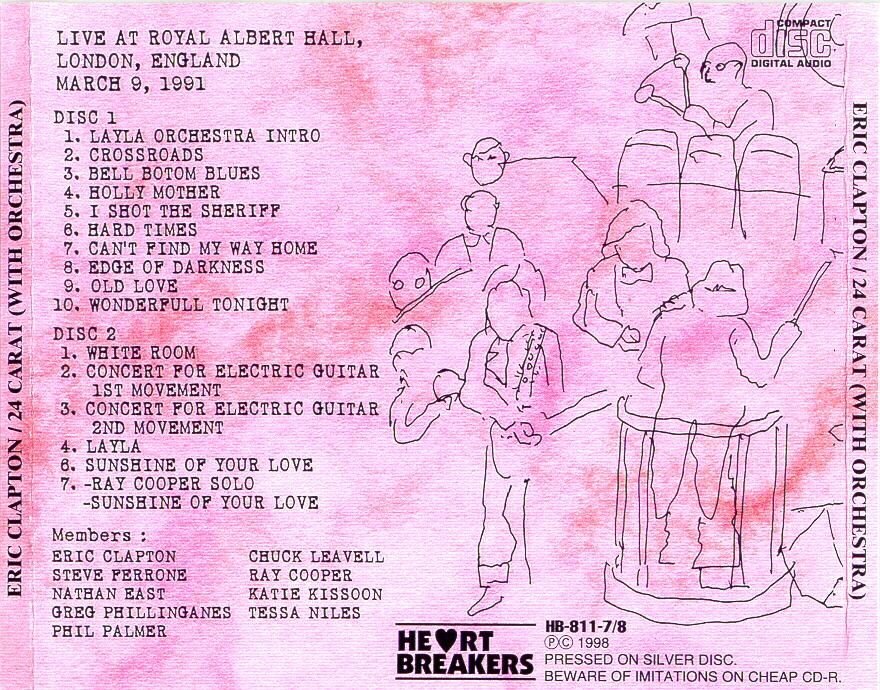 LIVE AT ROYAL ALBERT HALL,
LONDON, ENGLAND
MARCH 9, 1991
DISC 1
1. LAYLA ORCHESTRA INTRO
2. CROSSROADS
3. BELL BOTOM BLUES
4. HOLLY MOTHER
5. I SHOT THE SHERIFF
6. HARD TIMES
7. CAN'T FIND MY WAY HOME
8. EDGE OF DARKNESS
9. OLD LOVE
10. WONDERFULL TONIGHT
DISC 2
1. WHITE ROOM
2. CONCERT FOR ELECTRIC GUITAR
1ST MOVEMENT
3. CONCERT FOR ELECTRIC GUITAR
2ND MOVEMENT
4. LAYLA
6. SUNSHINE OF YOUR LOVE
7. -RAY COOPER SOLO
-SUNSHINE OF YOUR LOVE
Members :
ERIC CLAPTON CHUCK LEAVELL
STEVE FERRONE RAY COOPER
NATHAN EAST KATIE KISSOON
GREG PHILLINGANES TESSA NILES
PHIL PALMER
COMPACT
disc
DIGITAL AUDIO
HE♥RT
BREAKERS
HB-811-7/8
ⓅⒸ 1998
PRESSED ON SILVER DISC.
BEWARE OF IMITATIONS ON CHEAP CD-R.
ERIC CLAPTON / 24 CARAT (WITH ORCHESTRA)
ERIC CLAPTON / 24 CARAT (WITH ORCHESTRA)